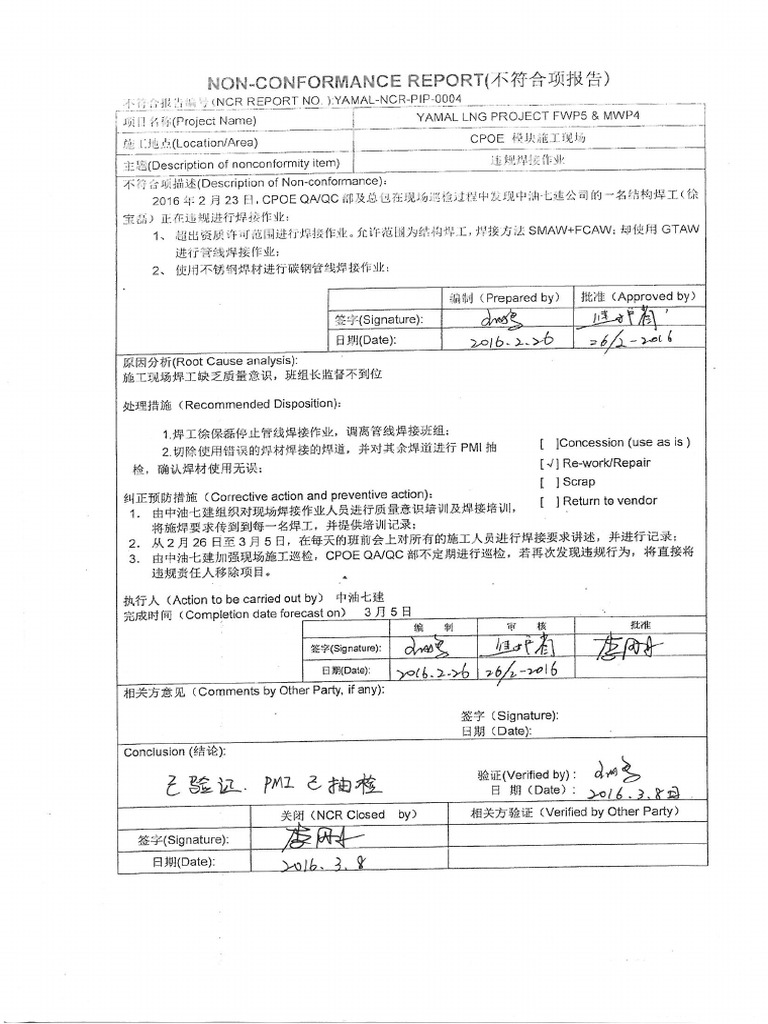 NON-CONFORMANCE REPORT(不符合项报告)
不符合报告编号(NCR REPORT NO. ):YAMAL-NCR-PIP-0004
项目名称(Project Name) YAMAL LNG PROJECT FWP5 & MWP4
施工地点(Location/Area) CPOE 模块施工现场
主题(Description of nonconformity item) 违规焊接作业
不符合项描述(Description of Non-conformance):
2016 年 2 月 23 日，CPOE QA/QC 部及总包在现场巡检过程中发现中油七建公司的一名结构焊工（徐
宝磊）正在违规进行焊接作业：
1、 超出资质许可范围进行焊接作业。允许范围为结构焊工，焊接方法 SMAW+FCAW；却使用 GTAW
进行管线焊接作业；
2、 使用不锈钢焊材进行碳钢管线焊接作业；
编制（Prepared by） 批准（Approved by）
签字(Signature):
日期(Date): 2016.2.26 26/2-2016
原因分析(Root Cause analysis):
施工现场焊工缺乏质量意识，班组长监督不到位
处理措施（Recommended Disposition):
1.焊工徐保磊停止管线焊接作业，调离管线焊接班组；
2.切除使用错误的焊材焊接的焊道，并对其余焊道进行 PMI 抽
检，确认焊材使用无误；
[ ]Concession (use as is )
[√] Re-work/Repair
[ ] Scrap
[ ] Return to vendor
纠正预防措施（Corrective action and preventive action):
1. 由中油七建组织对现场焊接作业人员进行质量意识培训及焊接培训，
将施焊要求传到到每一名焊工，并提供培训记录；
2. 从 2 月 26 日至 3 月 5 日，在每天的班前会上对所有的施工人员进行焊接要求讲述，并进行记录；
3. 由中油七建加强现场施工巡检，CPOE QA/QC 部不定期进行巡检，若再次发现违规行为，将直接将
违规责任人移除项目。
执行人（Action to be carried out by） 中油七建
完成时间（Completion date forecast on） 3 月 5 日
编 制 审 核 批准
签字(Signature):
日期(Date): 2016.2.26 26/2-2016
相关方意见（Comments by Other Party, if any):
签字（Signature):
日期（Date):
Conclusion (结论):
已验证. PMI 已抽检
验证(Verified by)：
日 期（Date）： 2016.3.8日
关闭（NCR Closed by） 相关方验证（Verified by Other Party）
签字(Signature):
日期(Date): 2016.3.8